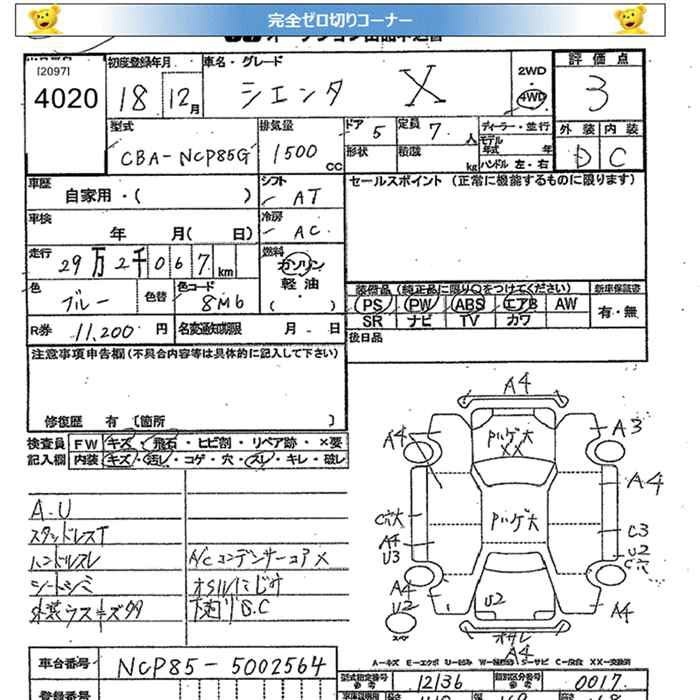 完全ゼロ切りコーナー
[2097]
4020
初度登録年月
18 12月
車名・グレード
シエンタ X
2WD
・
4WD
評価点
3
外装 内装
D C
型式
CBA-NCP85G
排気量
1500 CC
ドア 5
定員 7 人
形状
積載 kg
ディーラー・並行
モデル年式 年
ハンドル 左・右
車歴
自家用・( )
シフト
AT
セールスポイント (正常に機能するものに限ります)
車検
年 月( 日)
冷房
AC
走行
29万2千067km
燃料
ガソリン
軽油
( )
色
ブルー
色替
色コード
8M6
装備品 (純正品に限り○をつけてください)
新車保証書
PS PW ABS エアB AW
有・無
SR ナビ TV カワ
R券 11,200 円
名変通知期限 月 日
後日品
注意事項申告欄(不具合内容等は具体的に記入して下さい)
修復歴 有 [箇所 ]
検査員 FW キズ・飛石・ヒビ割・リペア跡・×要
記入欄 内装 キズ・汚レ・コゲ・穴・スレ・キレ・破レ
A-U
スタッドレスT
ハンドルスレ
シートシミ
外装ラスキズタタ
A/Cコンデンサーコア×
オイルにじみ
下廻りS.C
A4
A4
A3
Pハゲ大
XX
A4
C穴大
Pハゲ大
A4
U3
C3
U2
C穴
A4
U2
U2
A4
オサレ
A4
A-キズ E-エクボ U-凹み W-補修跡 S-サビ C-腐食 XX-交換済
車台番号 NCP85-5002564
型式指定番号 12136
類別区分番号 0017
登録番号